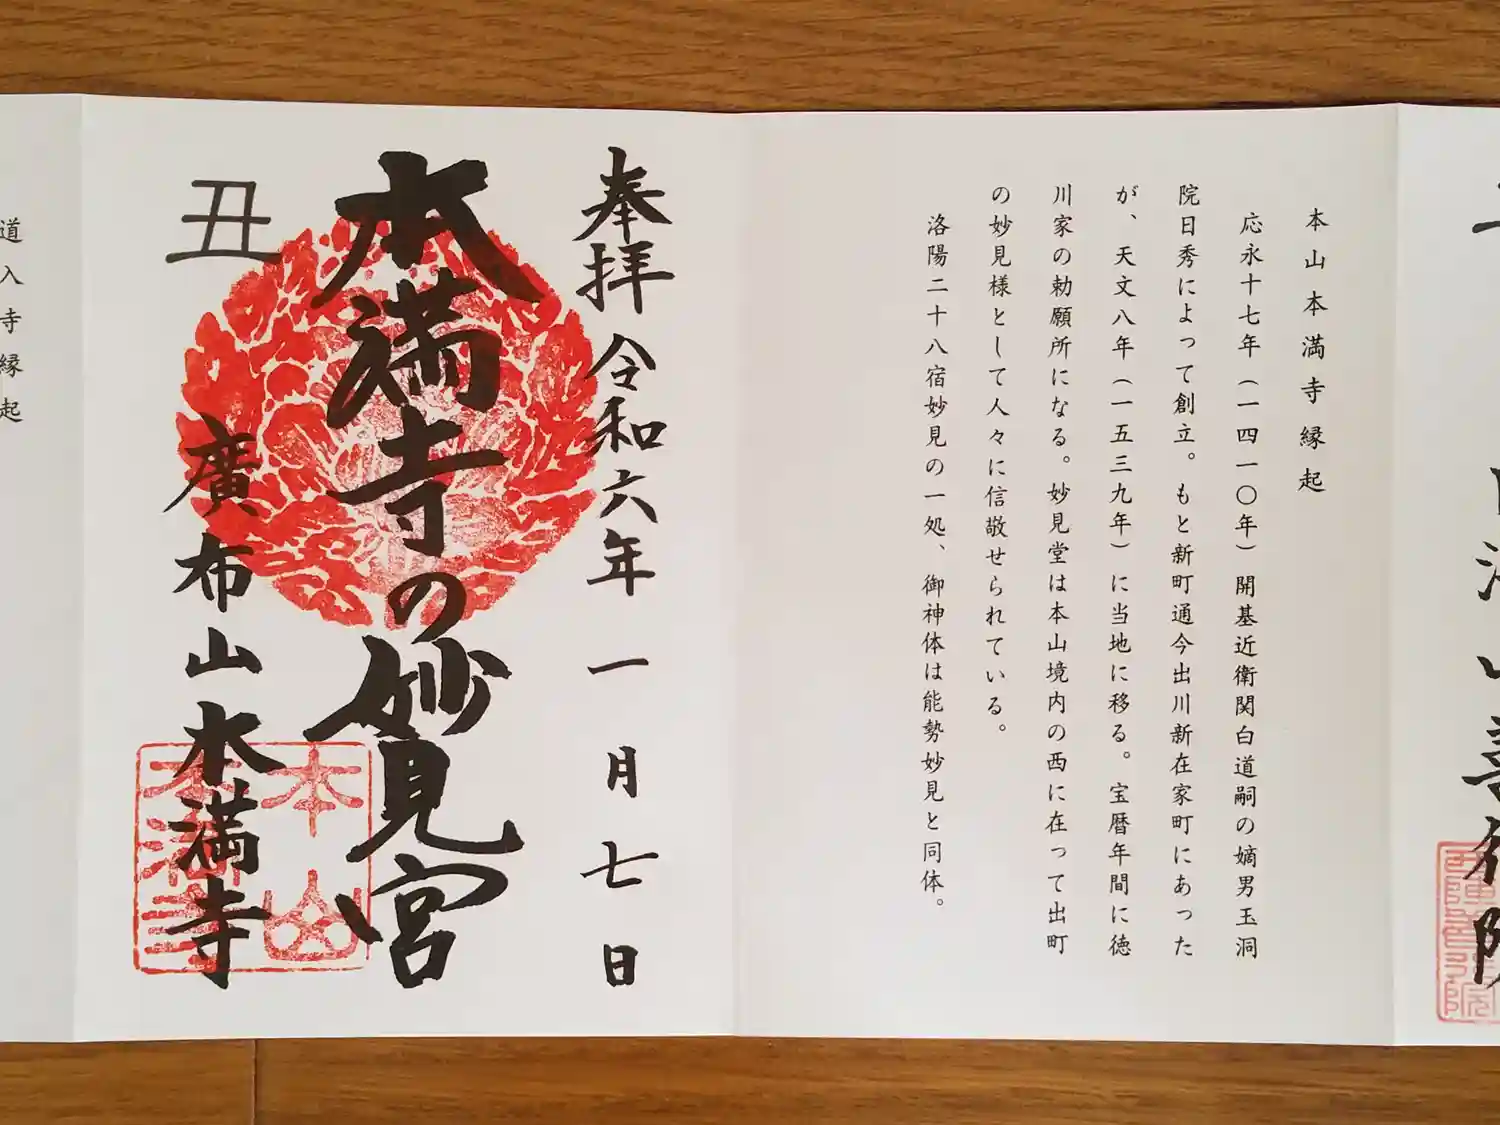 本山本満寺縁起
応永十七年（一四一〇年）開基近衛関白道嗣の嫡男玉洞
院日秀によって創立。もと新町通今出川新在家町にあった
が、天文八年（一五三九年）に当地に移る。宝暦年間に徳
川家の勅願所になる。妙見堂は本山境内の西に在って出町
の妙見様として人々に信敬せられている。
洛陽二十八宿妙見の一処、御神体は能勢妙見と同体。
奉拝 令和六年一月七日
本満寺の妙見宮
丑
廣布山本満寺
本山
本満寺
道入寺縁起